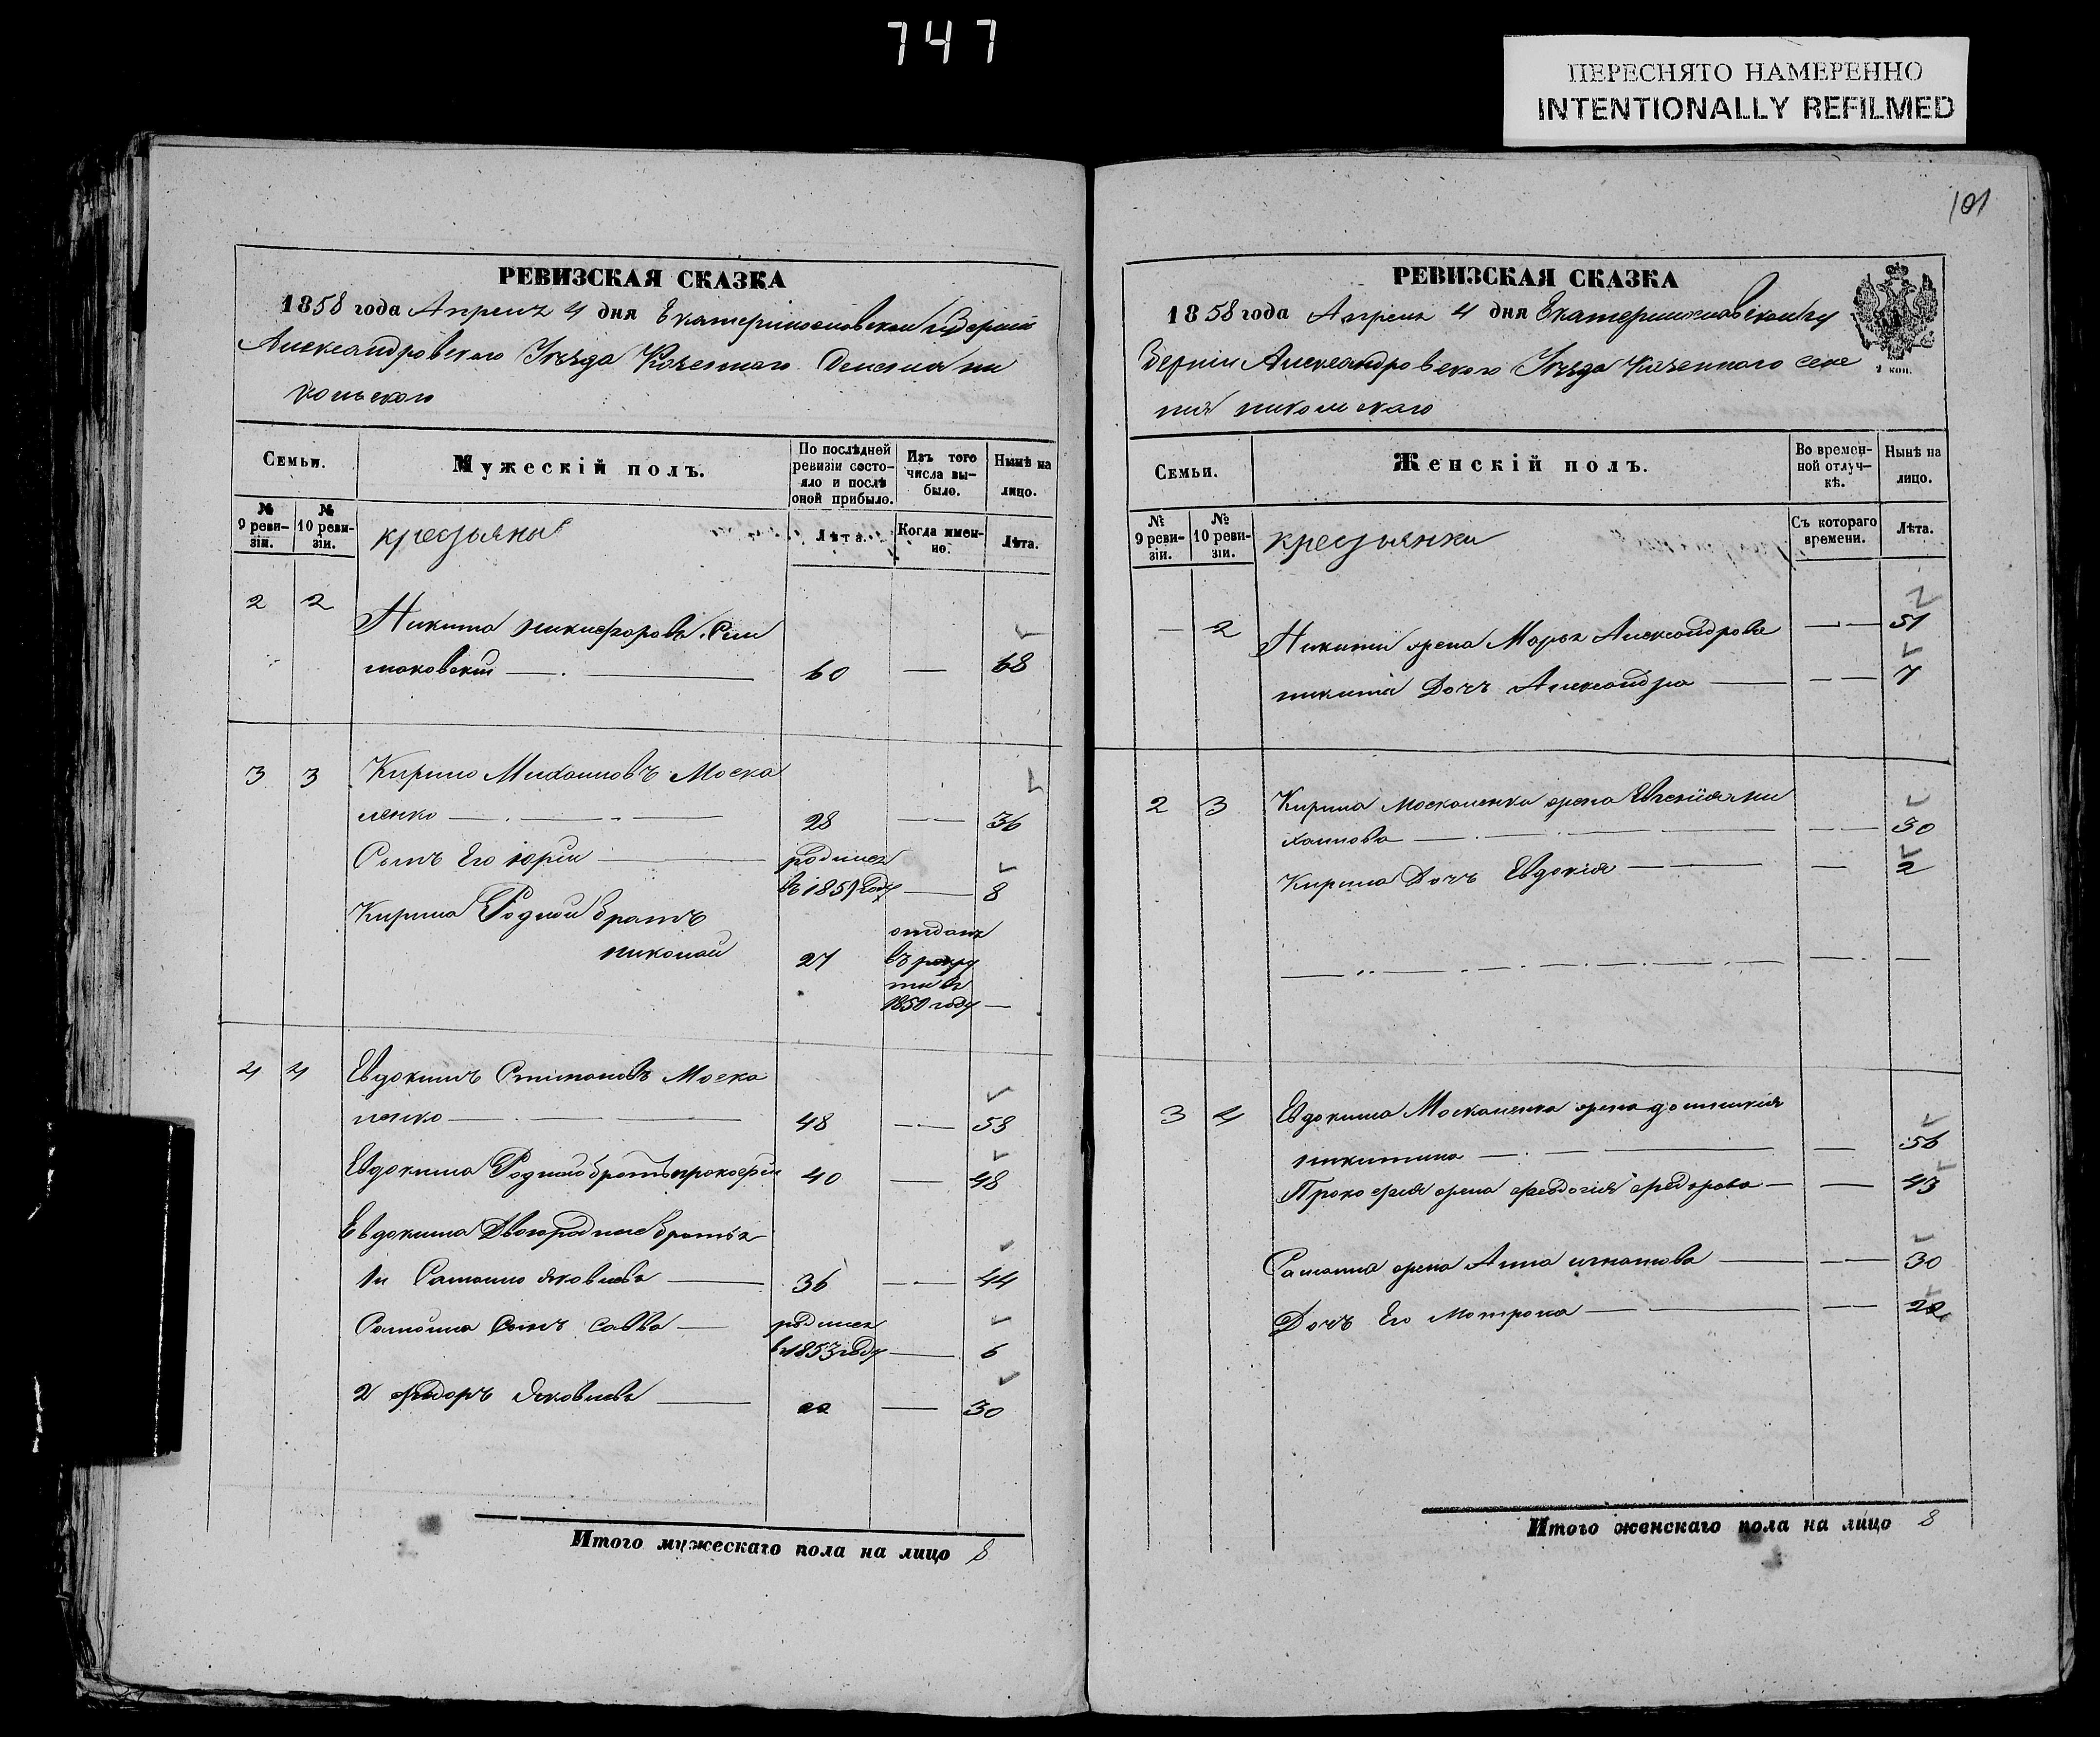 747
ПЕРЕСНЯТО НАМЕРЕННО
INTENTIONALLY REFILMED
РЕВИЗСКАЯ СКАЗКА
1858 года Апреля 4 дня Екатеринославской губерніи
Александровского Уезда Казенного Селения ни
кольского
Семьи.
Мужескій полъ.
По послѣдней ревизіи состояло и послѣ оной прибыло.
Изъ того числа выбыло.
Нынѣ на лицо.
№ 9 ревизіи.
№ 10 ревизіи.
крестьяны
Лѣта.
Когда именно.
Лѣта.
2 2 Никита никифоровъ
60 — 68
3 3 Кирило Михаиловъ Моска
ленко — 28 — 36
Сынъ Его юрій — родился
в 1851 году — 8
Кирила Родной братъ
николай 27
отданъ
въ рекру
ты в
1850 году —
4 4 Евдокимъ Степановъ Моска
ленко — 48 — 58
Евдокима Родной братъ прокофій 40 — 48
Евдокима Двоюродные братья
1й Самойло яковлевъ — 36 — 44
Самойла сынъ савва — родился
в 1853 году — 6
2 федоръ яковлевъ — 22 — 30
Итого мужескаго пола на лицо 8
101
РЕВИЗСКАЯ СКАЗКА
1858 года Апреля 4 дня Екатеринославской гу
берніи Александровского Уезда Казенного селе
ния никольскаго
Семьи.
Женскій полъ.
Во временной отлучкѣ.
Нынѣ на лицо.
№ 9 ревизіи.
№ 10 ревизіи.
крестьянки
Съ котораго времени.
Лѣта.
— 2 Никиты жена Марья Александрова — 51
никиты Дочъ Александра — 7
2 3 Кирила москаленка жена Евгенія ми
хаилова — 30
Кирила Дочъ Евдокія — 2
3 4 Евдокима Москаленка жена
никитина — 56
Прокофія жена феодосія федорова — 43
Самойла жена Анна игнатова — 30
Дочъ Его Мотрона —
Итого женскаго пола на лицо 8